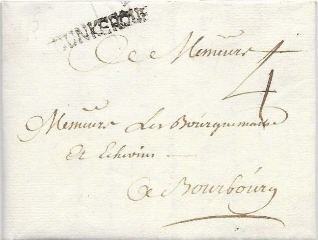 DUNKERQUE
A Messieurs
4
Messieurs Les Bourguemaitre
Et Echevins
A Bourbourg